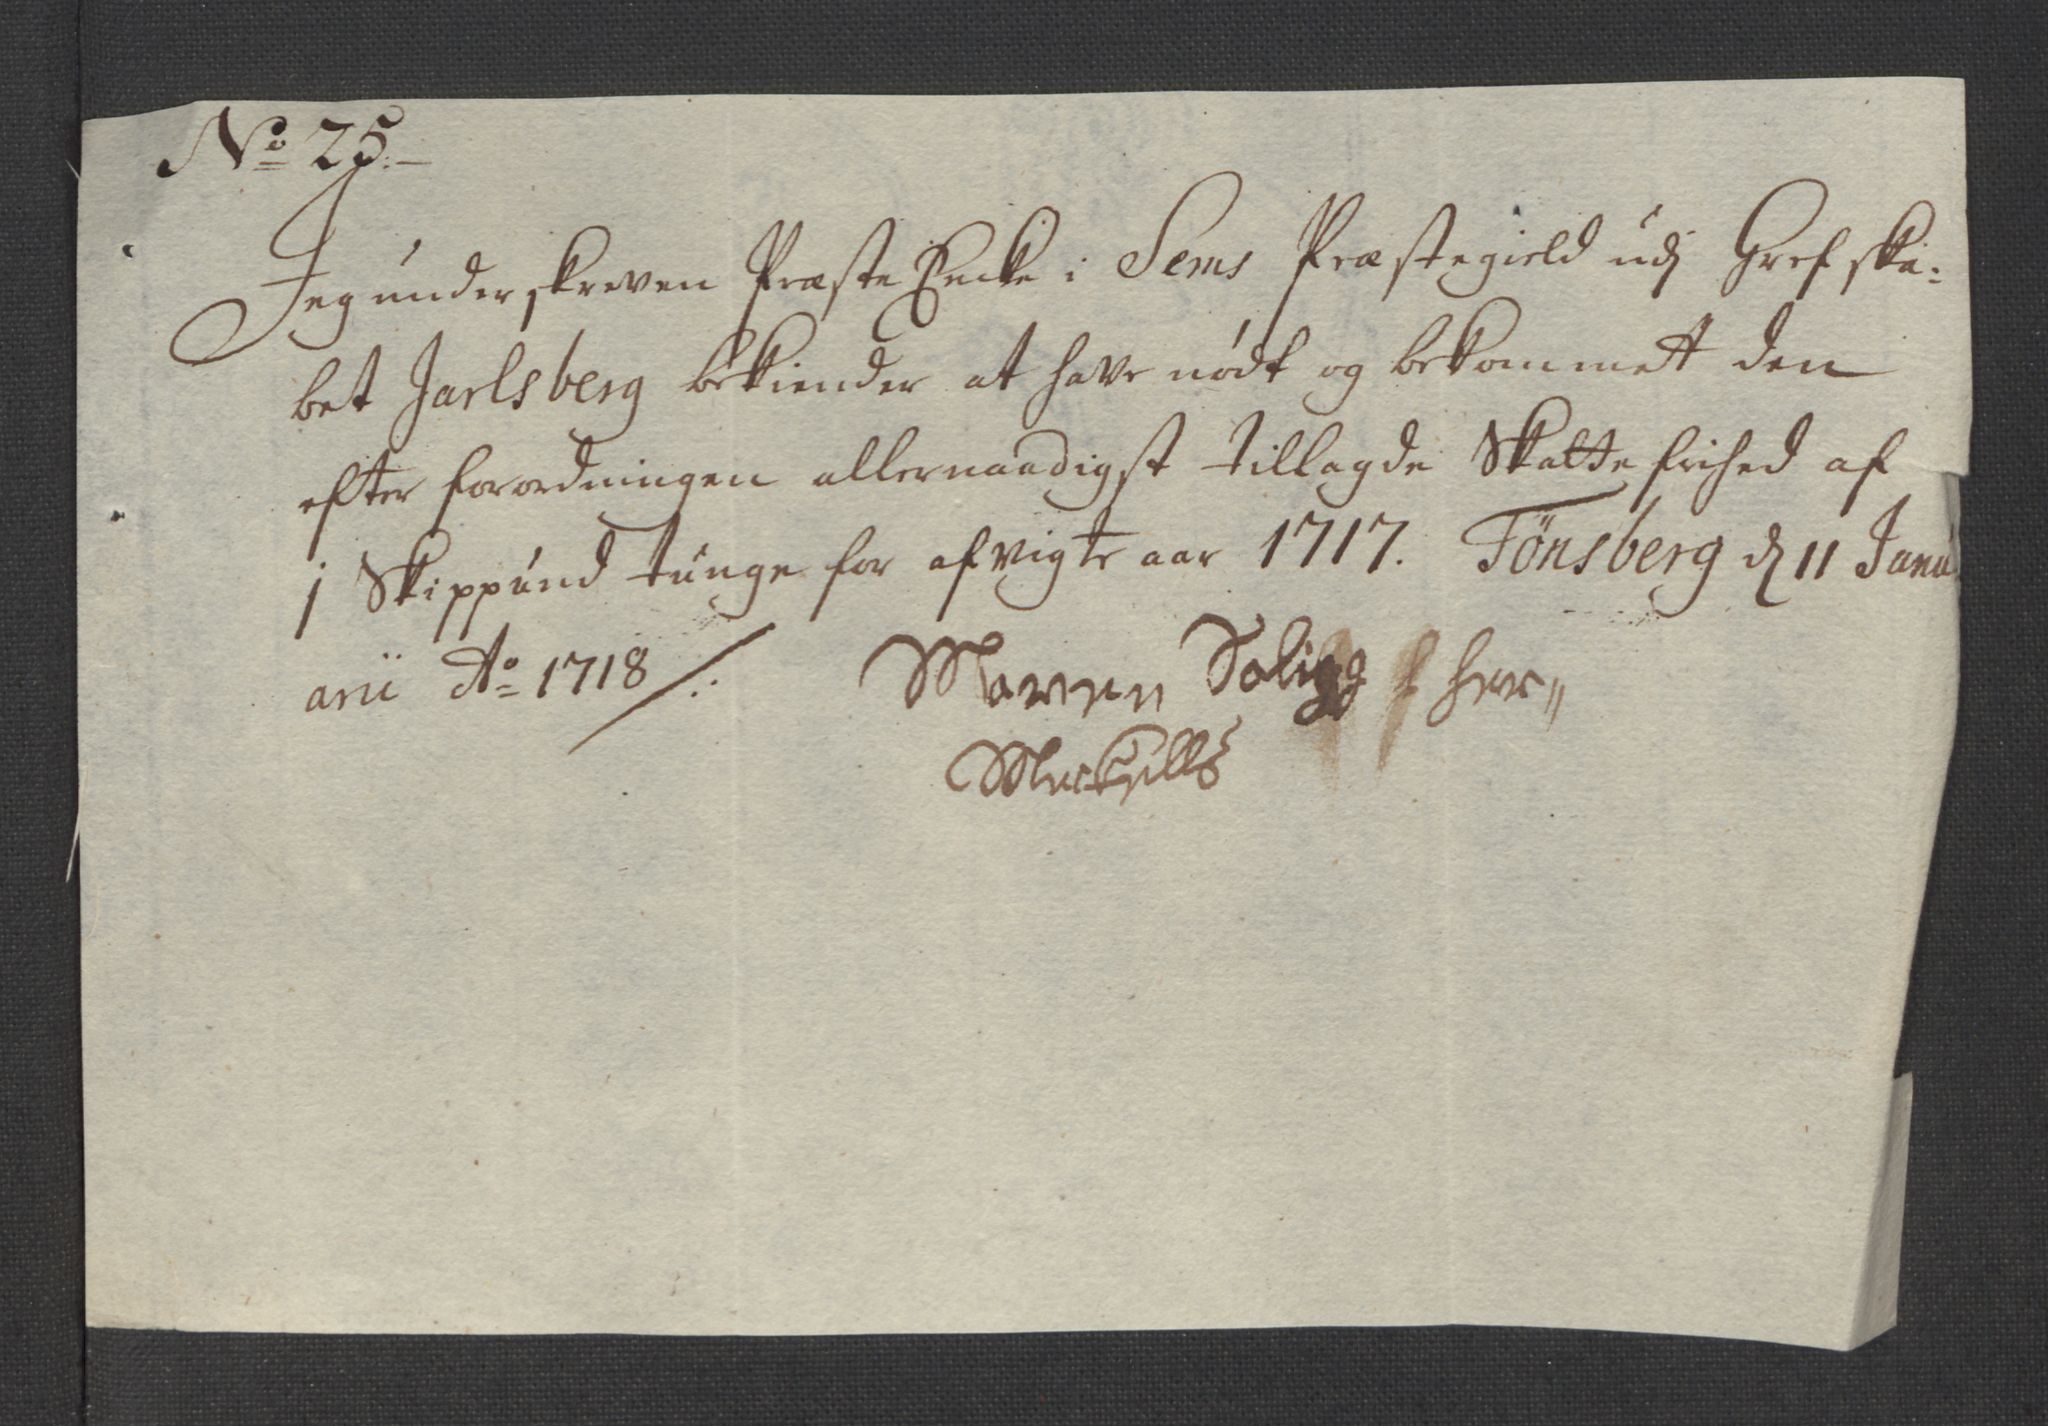 No 25.
Jeg underskreven Præste Encke i Sems Præstegield udj Grefska-
bet Jarlsberg bekiender at have nødt og bekommett den
efter forordningen allernaadigst tillagde Skatte frihed af
j Skippund tunge for afvigte aar 1717. Tönsberg d 11 Janu
arii Ao 1718
Maren Salig her